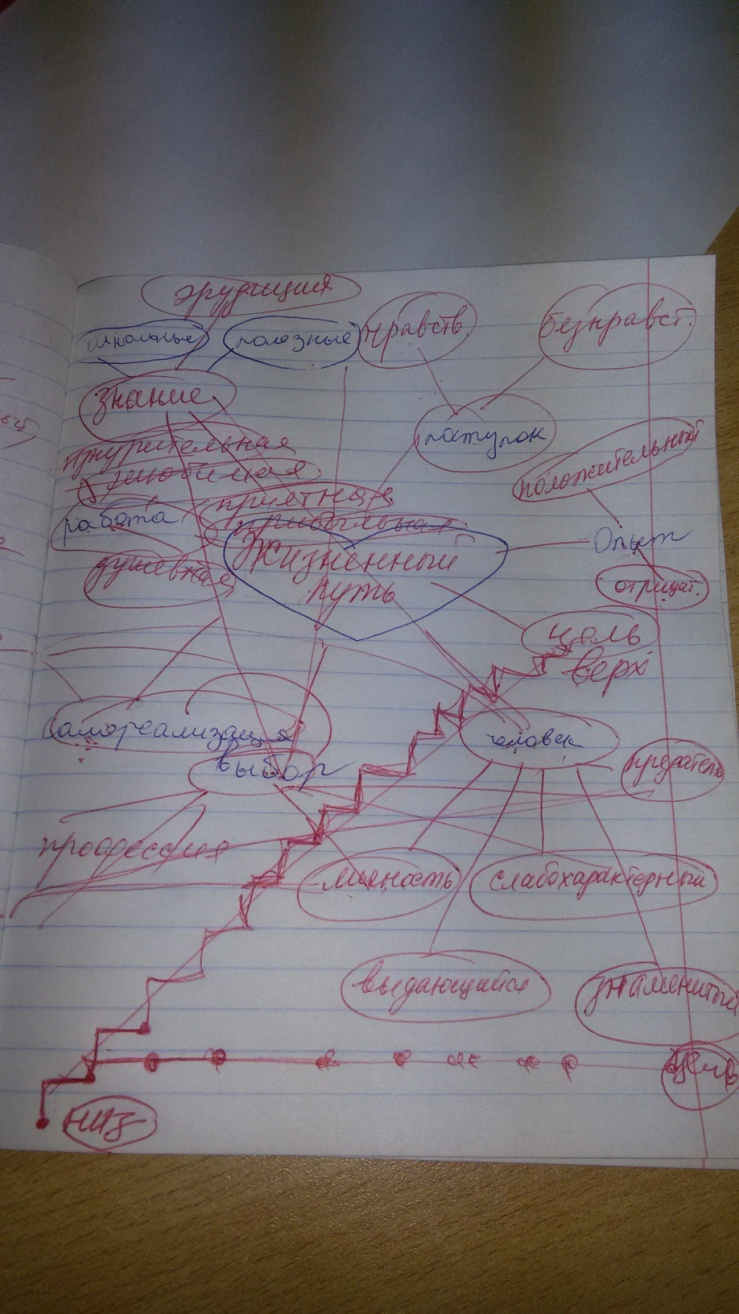 эрудиция
школьные полезные нравств безнравст.
знание
поступок
изнурительная
любимая
положительный
работа приятная
прибыльная
Опыт
Жизненный
путь
душевная
отрицат.
цель
верх
самореализация
человек
выбор
предатель
профессия
личность слабохарактерный
выдающийся знаменитый
низ